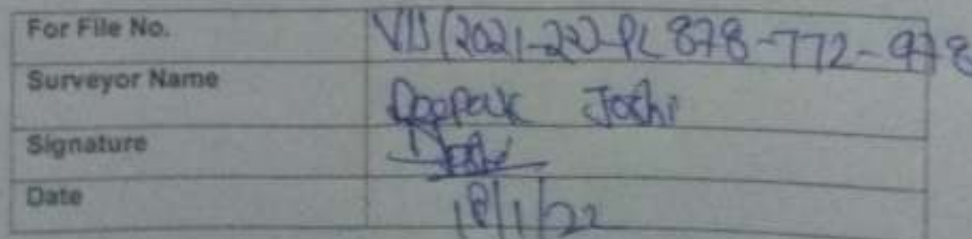 For File No. VIS(2021-22)-PL 878-772-978
Surveyor Name Deepak Joshi
Signature Joshi
Date 18/1/22